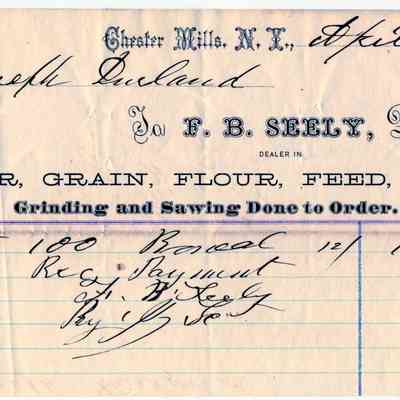 Chester Mills, N. Y., Apri
seph Durland
To F. B. SEELY,
DEALER IN
R, GRAIN, FLOUR, FEED,
Grinding and Sawing Done to Order.
100 12/
Recd Payment
F. B. Seely
By